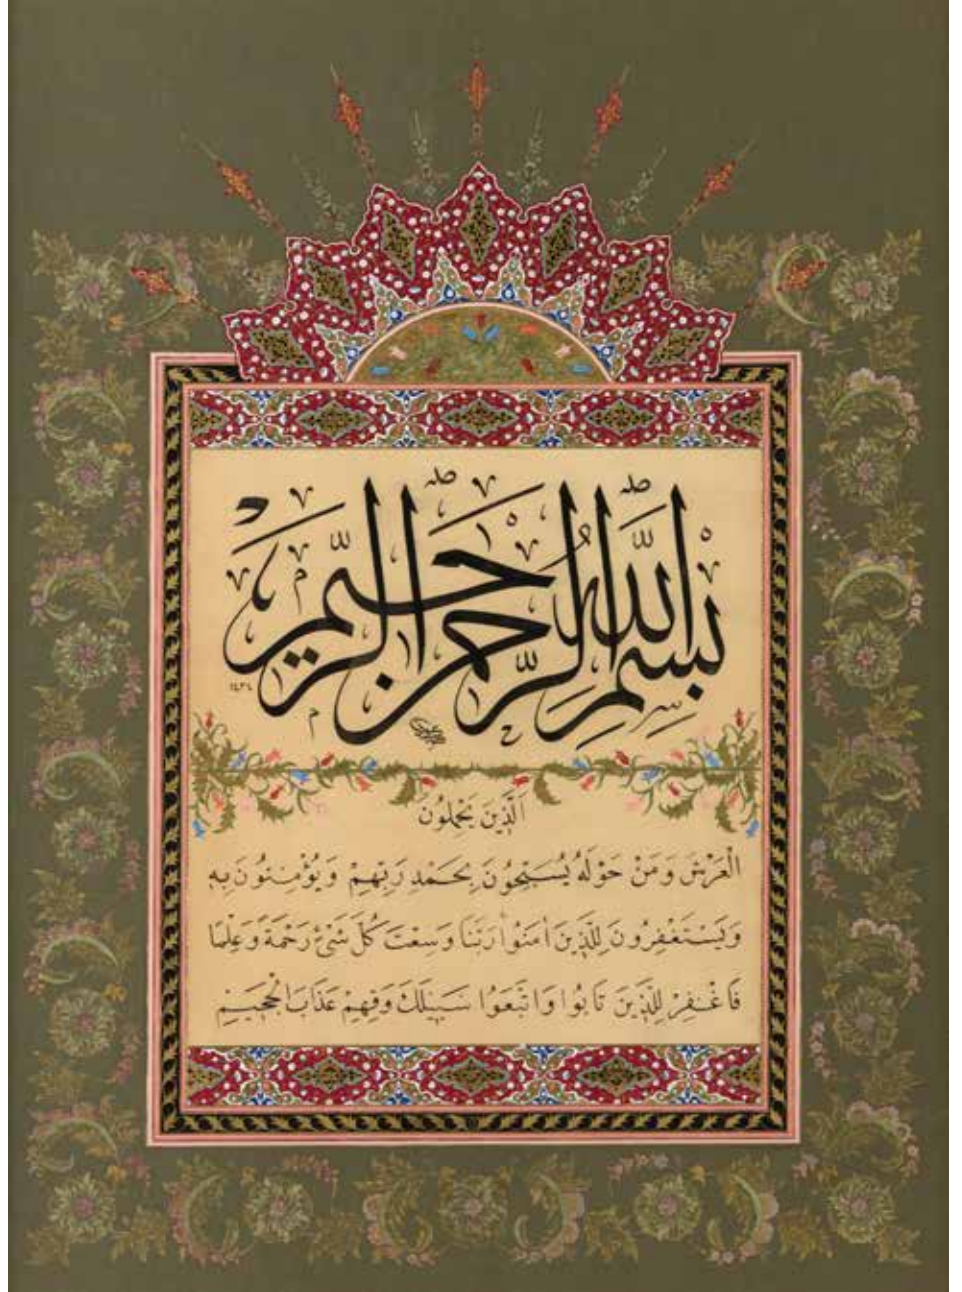 بِسْمِ اللَّهِ الرَّحْمٰنِ الرَّحِيمِ
١٤٣٤
الَّذِينَ يَحْمِلُونَ
الْعَرْشَ وَمَنْ حَوْلَهُ يُسَبِّحُونَ بِحَمْدِ رَبِّهِمْ وَيُؤْمِنُونَ بِهِ
وَيَسْتَغْفِرُونَ لِلَّذِينَ اٰمَنُوا رَبَّنَا وَسِعْتَ كُلَّ شَيْءٍ رَحْمَةً وَعِلْمًا
فَاغْفِرْ لِلَّذِينَ تَابُوا وَاتَّبَعُوا سَبِيلَكَ وَقِهِمْ عَذَابَ الْجَحِيمِ